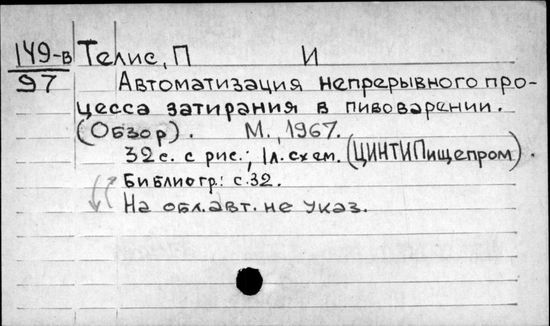 149-в Телис, П И
97 Автоматизация непрерывного про-
цесса затирания в пивоварении.
(Обзор). М., 1967.
32 с. с рис.; 1 л. схем. (ЦИНТИПищепром).
Библиогр: с. 32.
На обл. авт. не указ.